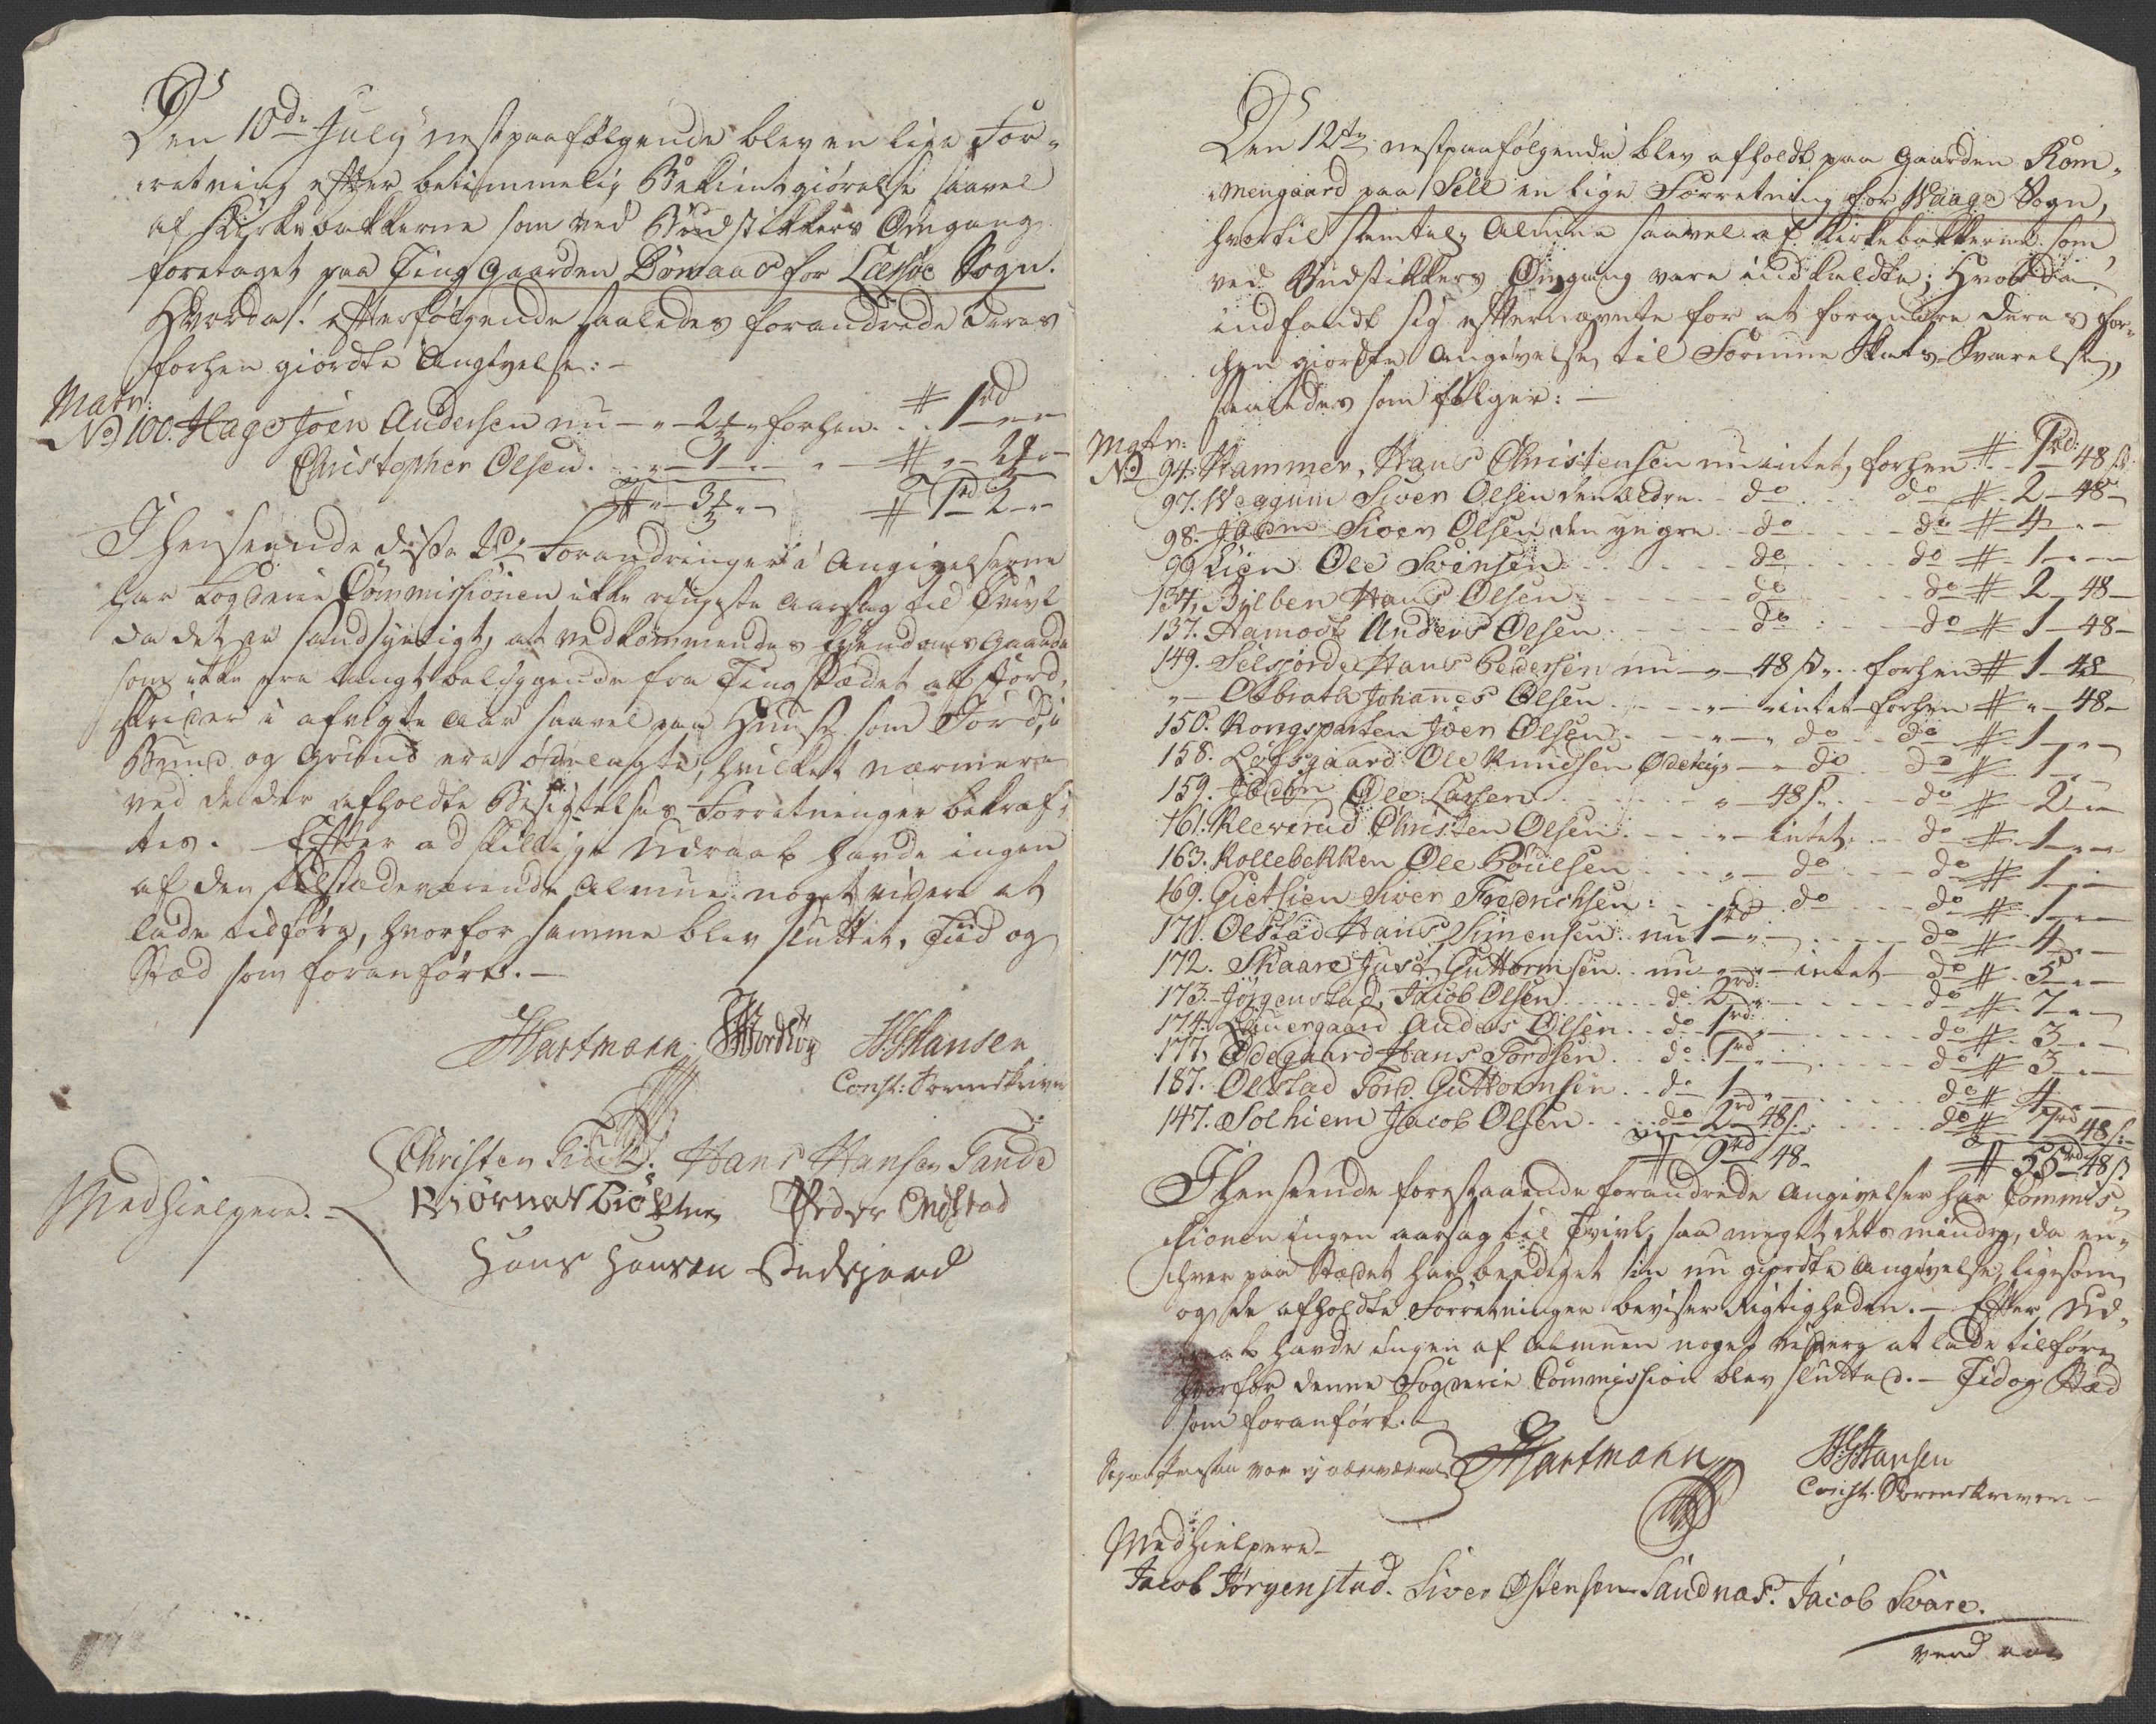 Den 10de July nestpaafølgende blev en lige For-
retning efter betimmelig Bekientgiørelse saavel
af Kirkebakkerne som ved Budstikkers Omgang
foretaget paa Ting Gaarden Dömaas for Lessøe Sogn.
Hvorda efterfølgende saaledes forandrede deres
forhen giordte Angivelse:-
Matr:
No 100. Hage Joen Andersen nu - " - 2½ " forhen . . # 1rd " -
Christopher Olsen . . " - 1 - " - # " - 2 " -
# " - 3½ " - # 1rd 2 - "
I henseende disse 2de Forandringer i Angivelserne
har Fogderie Commissionen ikke ringeste Aarsag til Tvivl
da det er sandsynligt, at vedkommendes Ejendoms Gaarde
som ikke ere langt beliggende fra Tingstædet af Jord-
skreder i afvigte Aar saavel paa Huuse som Jord, i
Bund og Grund ere ødelagte, hvilket nærmere
ved de der afholdte Besigtelses Forretninger bekræf-
tes. - Efter adskillige Udraab havde ingen
af den tilstædeværende Almue noget videre at
lade tilføre, hvorfor samme blev sluttet, Tiid og
Stæd som foranført. -
Hartmann HHansen
Const: Sorenskriver
Christen Hans Hansen Tande
Medhielpere. Peder
Hans Hansen
Den 12te nestpaafølgende blev afholdt paa Gaarden Rom-
mengaard paa Sell en lige Forretning for Waage Sogn,
hvortil samtlig Almue saavel af Kirkebakkerne som
ved Budstikkers Omgang vare indkaldte; Hvorda
indfandt sig efternævnte for at forandre deres for-
hen giordte Angivelse til Formue Skats Svarelse,
saaledes som følger: -
Matr:
No 94. Hammer, Hans Christensen nu intet, forhen # 1rd: 48 s
97. Weggum Siver Olsen den ældre - do do # 2 - 48 -
98. Idem Siver Olsen den yngre - do do # 4 - " -
99 Lien Ole Svensen do do # 1 - " -
134. Bylben Hans Olsen do do # 2 - 48 -
137. Aamodt Anders Olsen do do # 1 - 48 -
149. Selsjorde Hans Pedersen nu - " - 48 s " forhen # 1 - 48
" - Olbrath Johannes Olsen - " - intet - forhen # " - 48 -
150. Kongsparten Joen Olsen - " - do - do # 1 - " -
158. Løfsgaard Ole Knudsen Ødeleie - " do do # 1 - " -
159. Idem Ole Larsen " - 48 s - do # 2 - " -
161. Kleverud Christen Olsen - " - intet - do # 1 - " -
163. Kollebekken Ole Poulsen - " - do - do # 1 - " -
169. Gietsien Siver Fredrichsen - do - do # 1 - " -
171. Olstad Hans Simensen nu 1rd " - do # 4 - " -
172. Skaare Just Guttormsen nu - " - intet - do # 5 - " -
173. Jørgenstad, Jacob Olsen do 2rd: " - do # 7 - " -
174. Lauergaard Anders Olsen do 1rd: " - do # 3 - " -
177. Ødegaard Hans Tordsen do 1rd " - do # 3 - " -
187. Olstad Tord Guttormsen do 1 " - do # 4 - " -
147. Solhiem Jacob Olsen do 2rd 48 s - do # 7rd 48 s -
# 9rd 48 - # 55rd 48 s
I henseende forestaaende forandrede Angivelser har Commis-
sionen ingen aarsag til Tvivl, saa meget dets mindre, da en-
hver paa Stædet har beediget sin nu giordte Angivelse, ligesom
og de afholdte Forretninger beviser Rigtigheden. - Efter Ud-
raab havde ingen af Almuen noget videre at lade tilføre
hvorfor denne Fogderie Commission blev sluttet. - Tid og Stæd
som foranført. -
var ej Hartmann HHansen
Const. Sorenskriver -
Medhielpere -
Jacob Jørgenstad. Siver Østensen Sandnas. Jacob Svare.
vend om